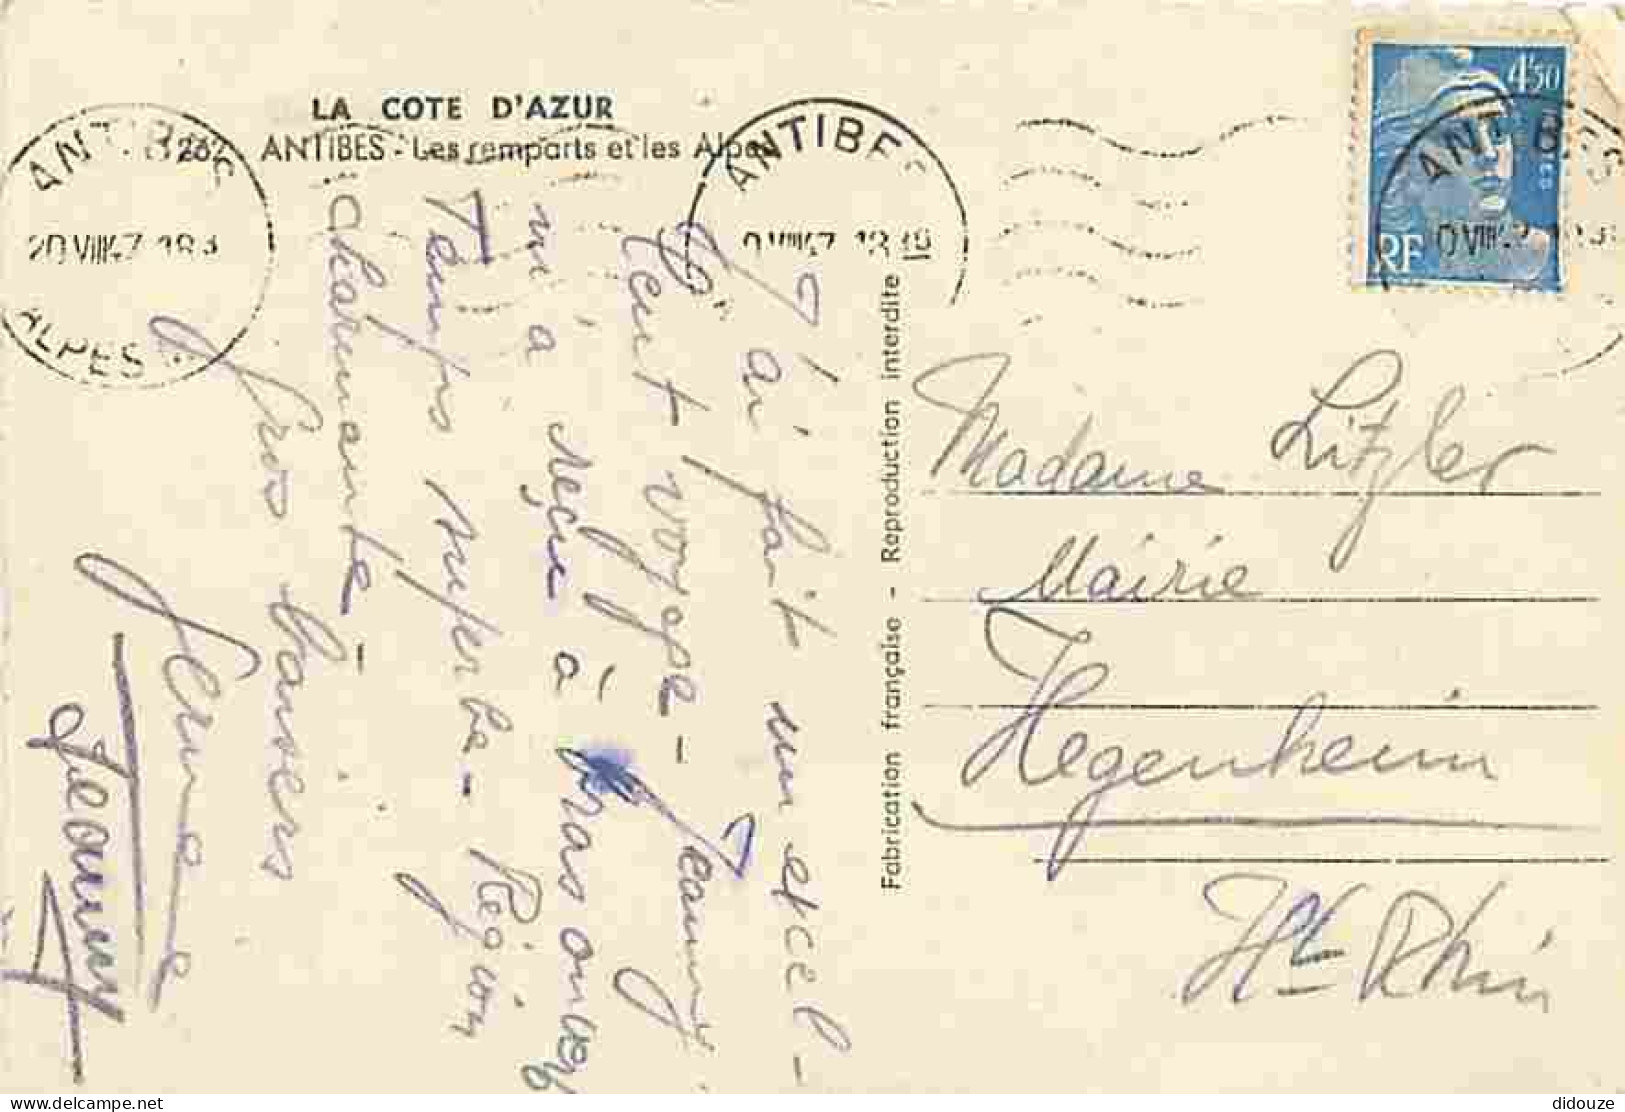 LA COTE D'AZUR
1262 ANTIBES - Les remparts et les Alpes
ANTIBES
20 VIII 47 18 30
ALPES
ANTIBES
0 VIII 47 18 30
ANTIBES
0 VIII 47 18 30
4F50
RF
J'ai fait un excel-
lent voyage - Jeanny
m'a reçue à bras ouverts
Temps superbe - Région
charmante -
Gros baisers
Jeanny
Fabrication française - Reproduction interdite
Madame Litzler
Mairie
Hegenheim
Ht Rhin
didouze